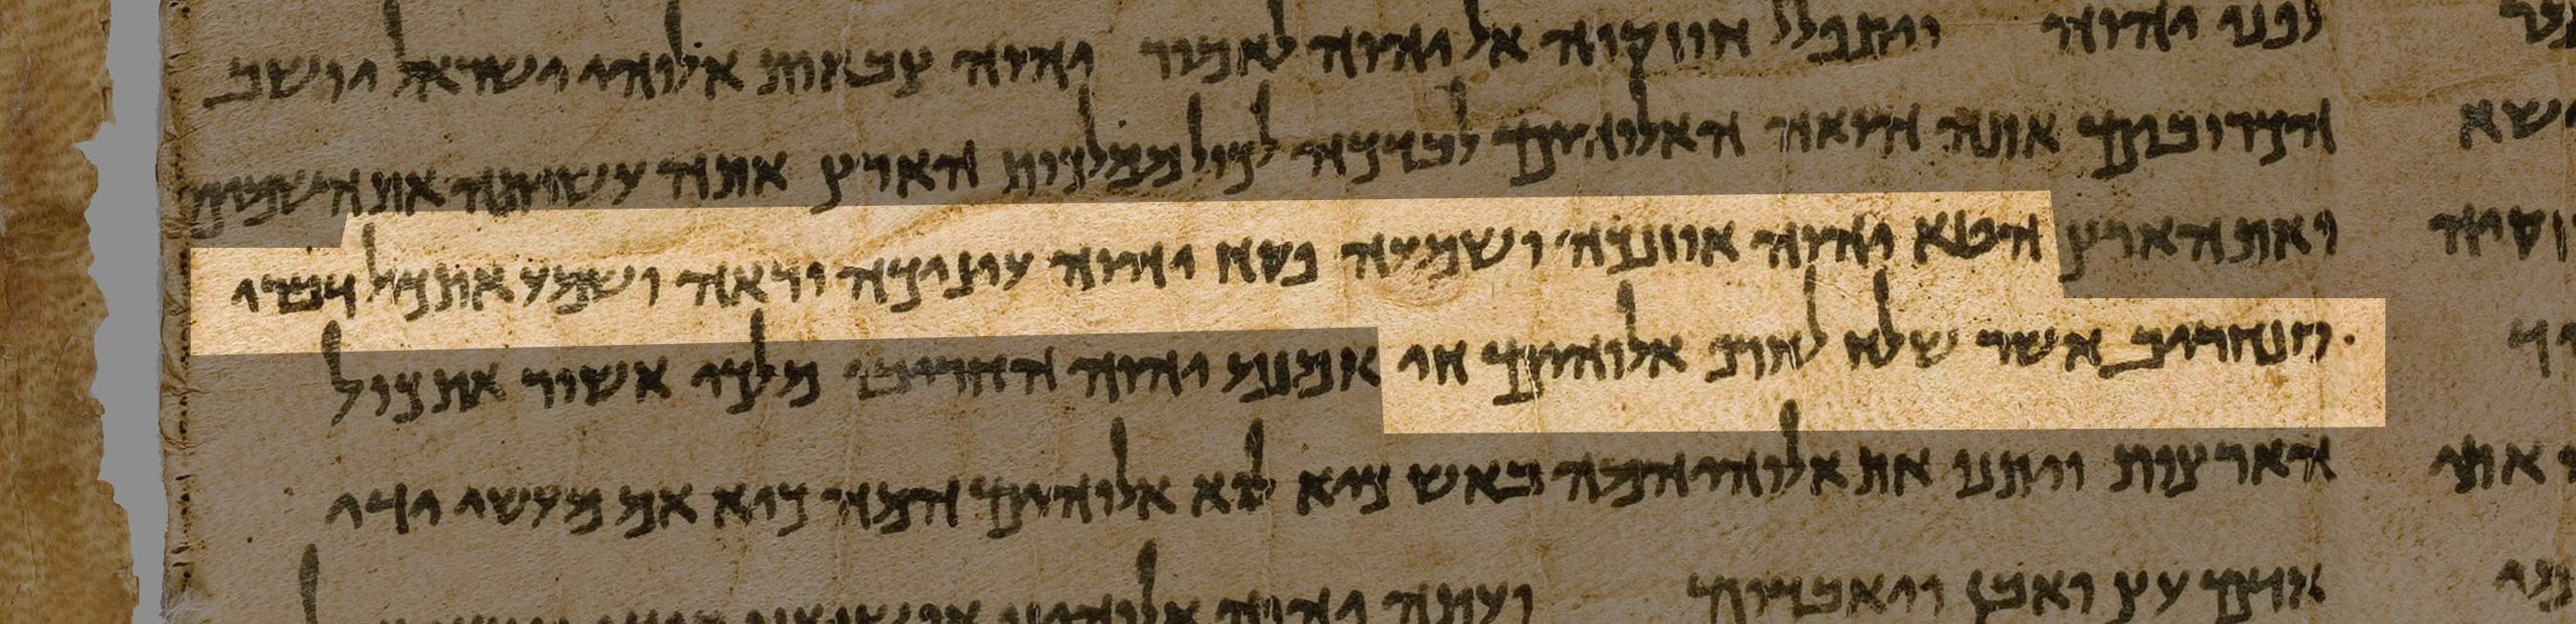 לפני יהוה ויתפלל חוזקיה אל יהוה לאמור יהוה צבאות אלוהי ישראל יושב
הכרובים אתה הואה האלוהים לבדכה לכול ממלכות הארץ אתה עשיתה את השמים
ואת הארץ הטא יהוה אוזנכה ושמעה פקח יהוה עיניכה וראה ושמע את כול דברי
סנחריב אשר שלח לחרף אלוהים חי אמנם יהוה החריבו מלכי אשור את כול
הארצות ויתנו את אלוהיהמה באש כיא לוא אלוהים המה כיא אם מעשי ידי
אדם עץ ואבן ויאבדום ועתה יהוה אלוהינו